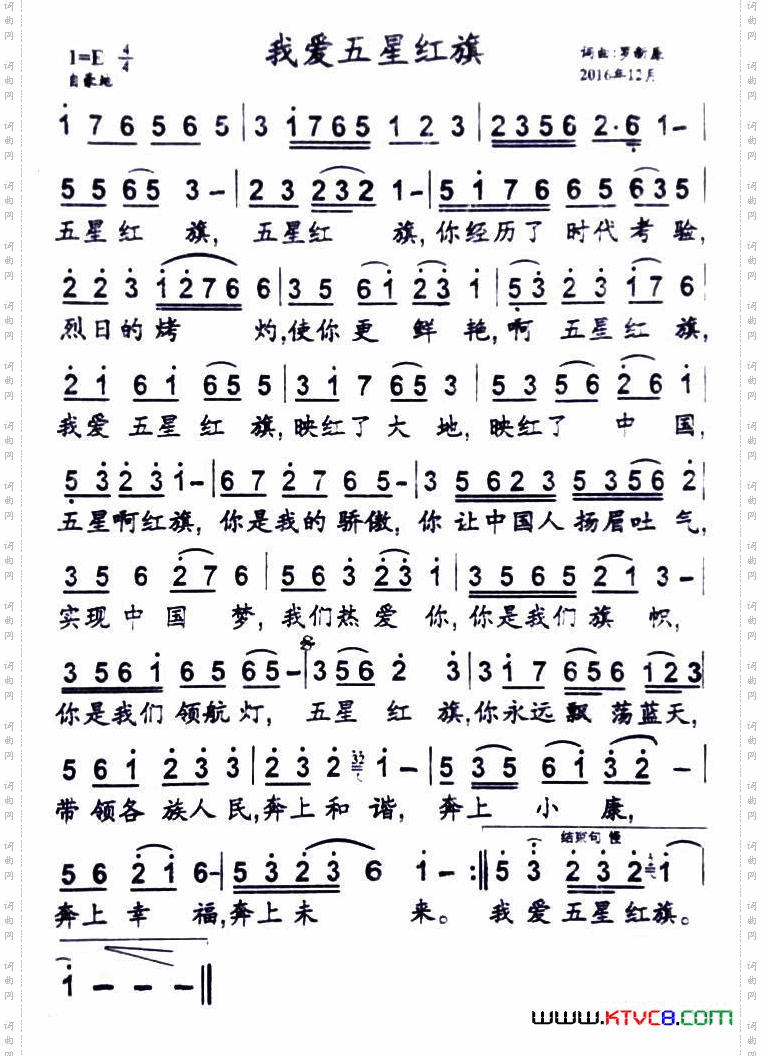 我爱五星红旗
1=E 4/4
词曲:罗新康
自豪地
2016年12月
1 7 6 5 6 5 | 3 1 7 6 5 1 2 3 | 2 3 5 6 2·6 1 – |
5 5 6 5 3 – | 2 3 2 3 2 1 – | 5 1 7 6 6 5 6 3 5 |
五星红 旗, 五星红 旗,你经历了 时代考验,
2 2 3 1 2 7 6 6 | 3 5 6 1 2 3 1 | 5 3 2 3 1 7 6 |
烈日的烤 灼,使你更 鲜 艳,啊 五星红旗,
2 1 6 1 6 5 5 | 3 1 7 6 5 3 | 5 3 5 6 2 6 1 |
我爱五星红 旗,映红了大 地,映红了 中 国,
5 3 2 3 1 – | 6 7 2 7 6 5 – | 3 5 6 2 3 5 3 5 6 2 |
五星啊红旗, 你是我的骄傲,你 让中国人扬眉吐气,
3 5 6 2 7 6 | 5 6 3 2 3 1 | 3 5 6 5 2 1 3 – |
实现中国 梦,我们热爱 你,你是我们旗 帜,
3 5 6 1 6 5 6 5 – | 3 5 6 2 3 | 3 1 7 6 5 6 1 2 3
你是我们领航灯, 五星 红 旗,你永远飘 荡蓝天,
5 6 1 2 3 3 | 2 3 2 32 1 – | 5 3 5 6 1 3 2 – |
带领各族人民,奔上和 谐, 奔上 小 康,
结束句 慢
5 6 2 1 6 – | 5 3 2 3 6 1 – :‖ 5 3 2 3 2 1
奔上幸 福,奔上未 来。 我爱五星红旗。
1 – – – ‖
www.KTVC8.com
词曲网